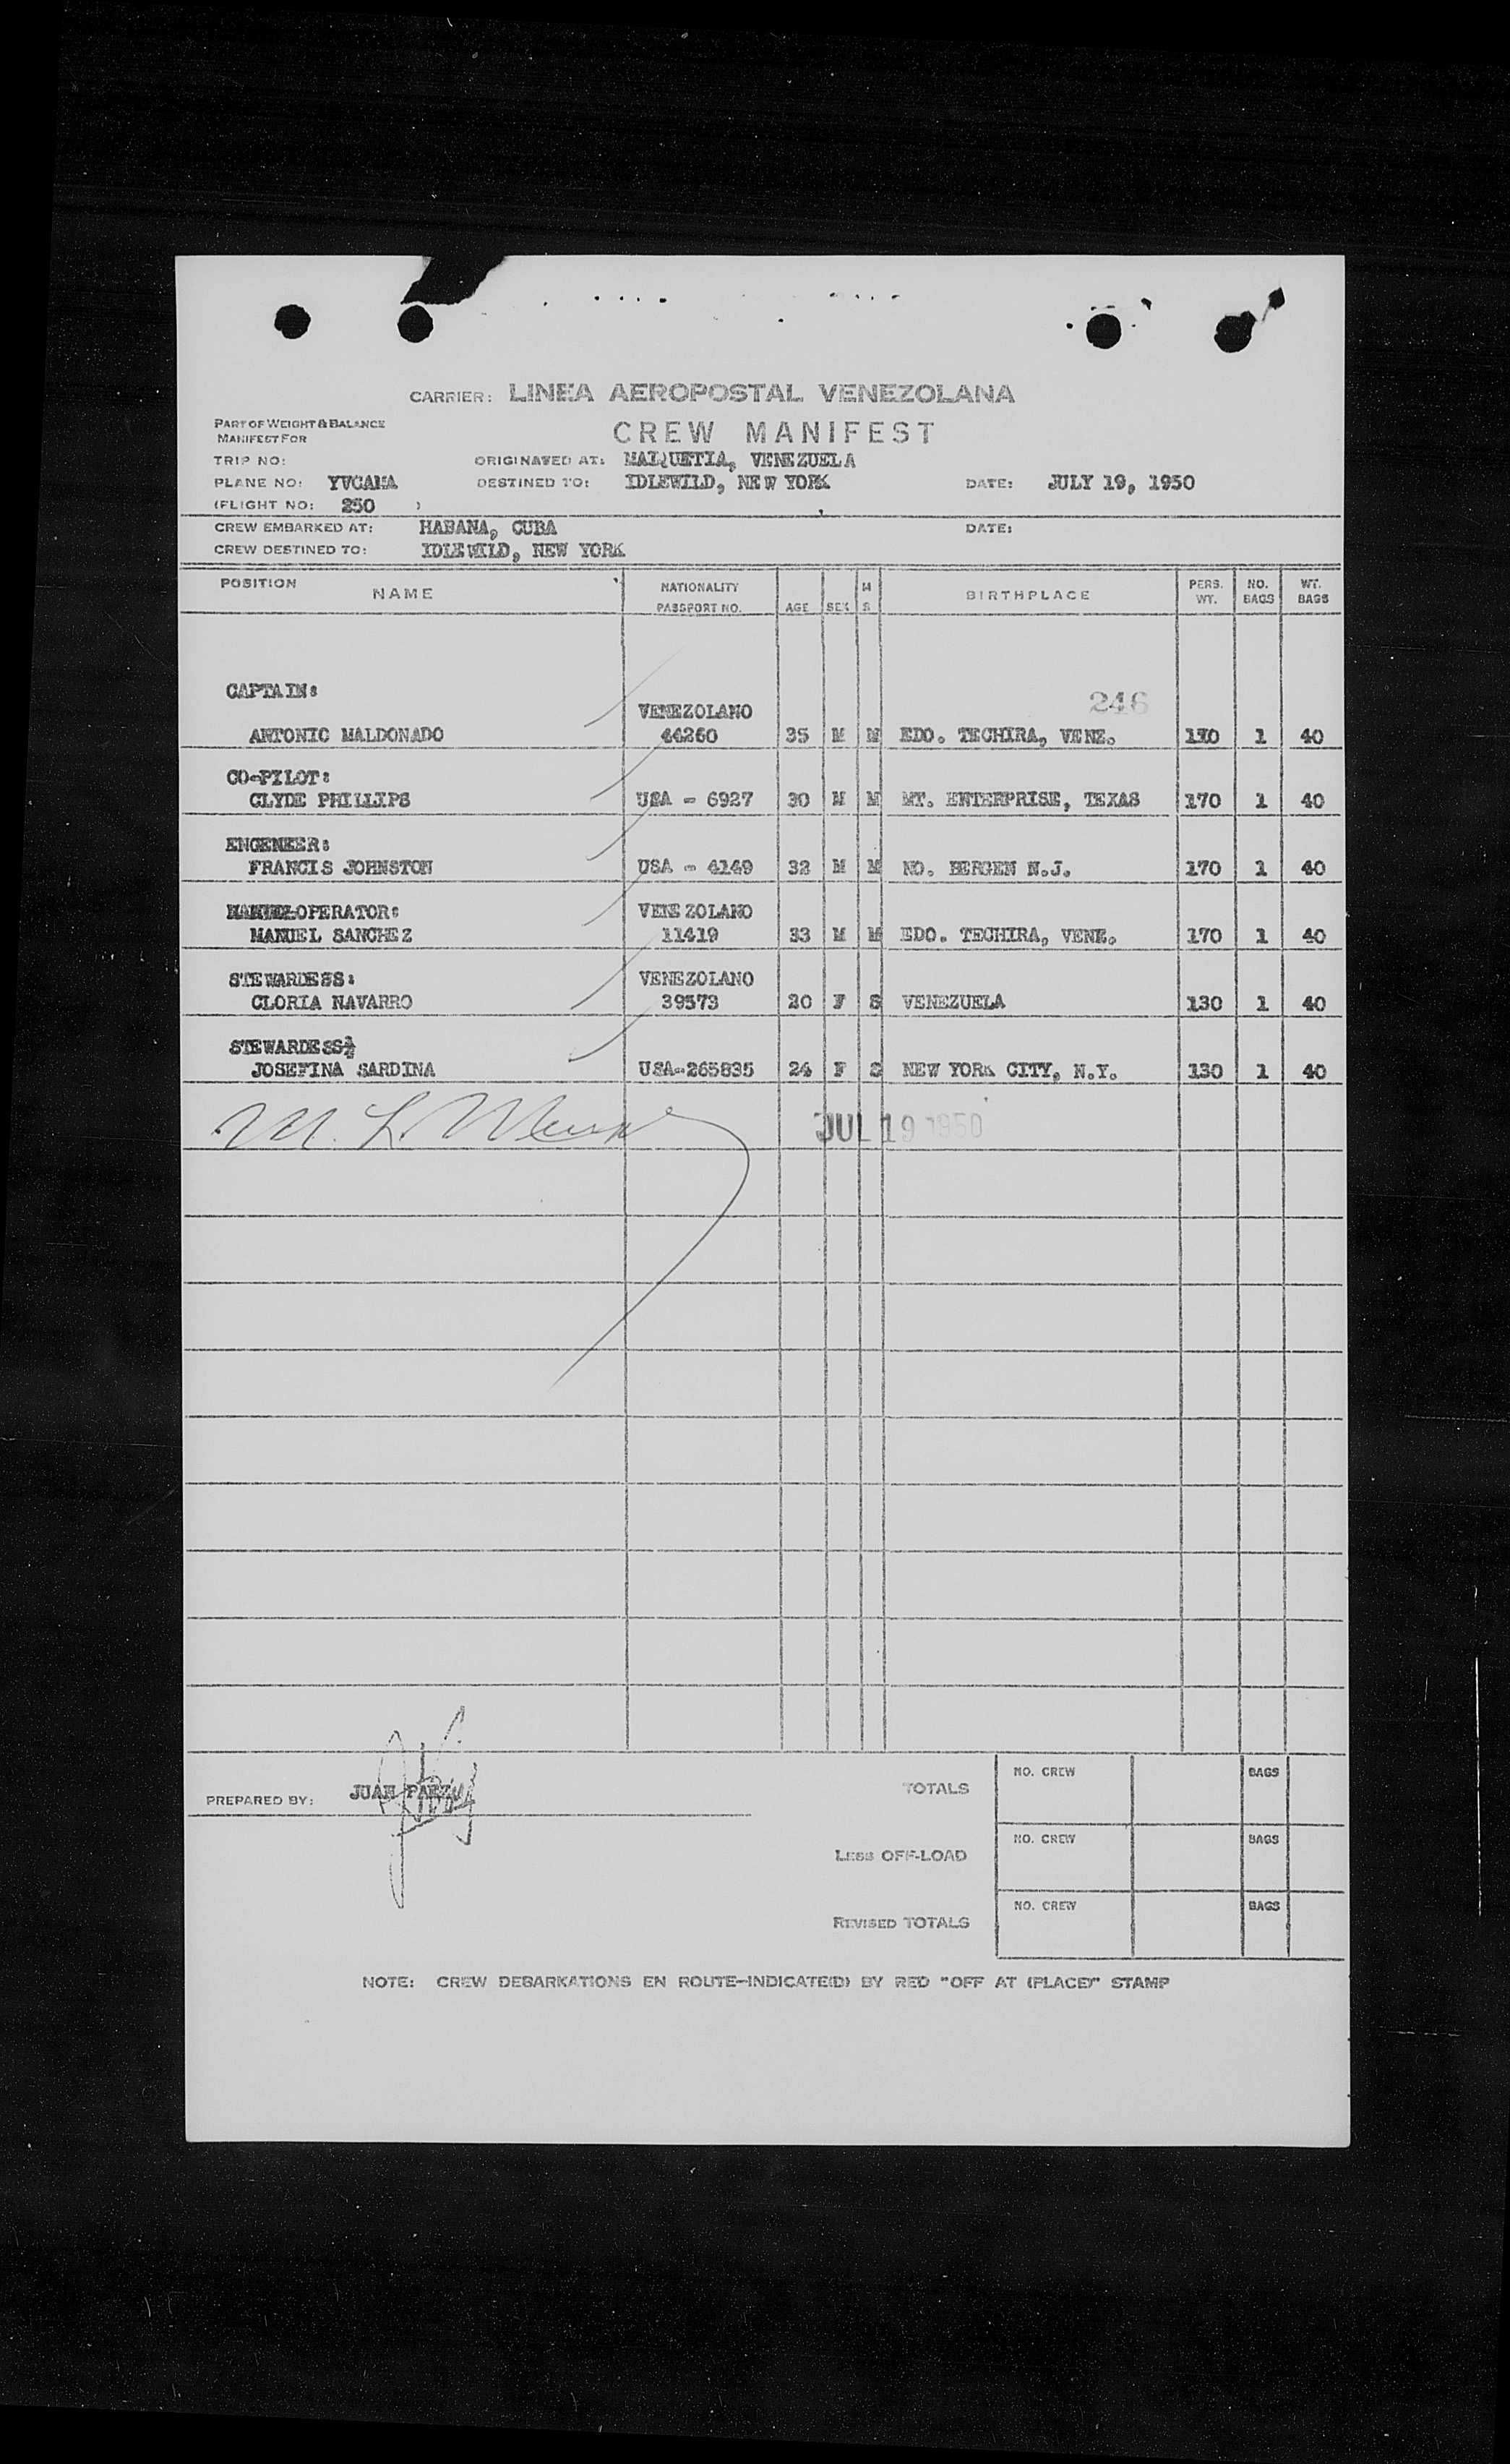 CARRIER: LINEA AEROPOSTAL VENEZOLANA
PART OF WEIGHT & BALANCE
MANIFEST FOR
CREW MANIFEST
TRIP NO: ORIGINATED AT: MAIQUETIA, VENEZUELA
PLANE NO: DESTINED TO: IDLEWILD, NEW YORK DATE: JULY 19, 1950
(FLIGHT NO: 250 )
CREW EMBARKED AT: HABANA, CUBA DATE:
CREW DESTINED TO: IDLEWILD, NEW YORK
POSITION NAME NATIONALITY PASSPORT NO. AGE SEX M S BIRTHPLACE PERS. WT. NO. BAGS WT. BAGS
CAPTAIN:
246
VENEZOLANO
ANTONIO MALDONADO 44260 35 M M EDO. TECHIRA, VENE. 170 1 40
CO-PILOT:
CLYDE PHILLIPS USA - 6927 30 M M MT. ENTERPRISE, TEXAS 170 1 40
ENGENEER:
FRANCIS JOHNSTON USA - 4149 32 M M NO. BERGEN N.J. 170 1 40
OPERATOR: VENEZOLANO
MANUEL SANCHEZ 11419 33 M M EDO. TECHIRA, VENE. 170 1 40
STEWARDESS: VENEZOLANO
GLORIA NAVARRO 39573 20 F S VENEZUELA 130 1 40
STEWARDESS
JOSEFINA SARDINA USA-265835 24 F S NEW YORK CITY, N.Y. 130 1 40
M. L.
JUL 19 1950
PREPARED BY: JUAN PAEZ
TOTALS NO. CREW BAGS
LESS OFF-LOAD NO. CREW BAGS
REVISED TOTALS NO. CREW BAGS
NOTE: CREW DEBARKATIONS EN ROUTE-INDICATE(D) BY RED "OFF AT (PLACE)" STAMP